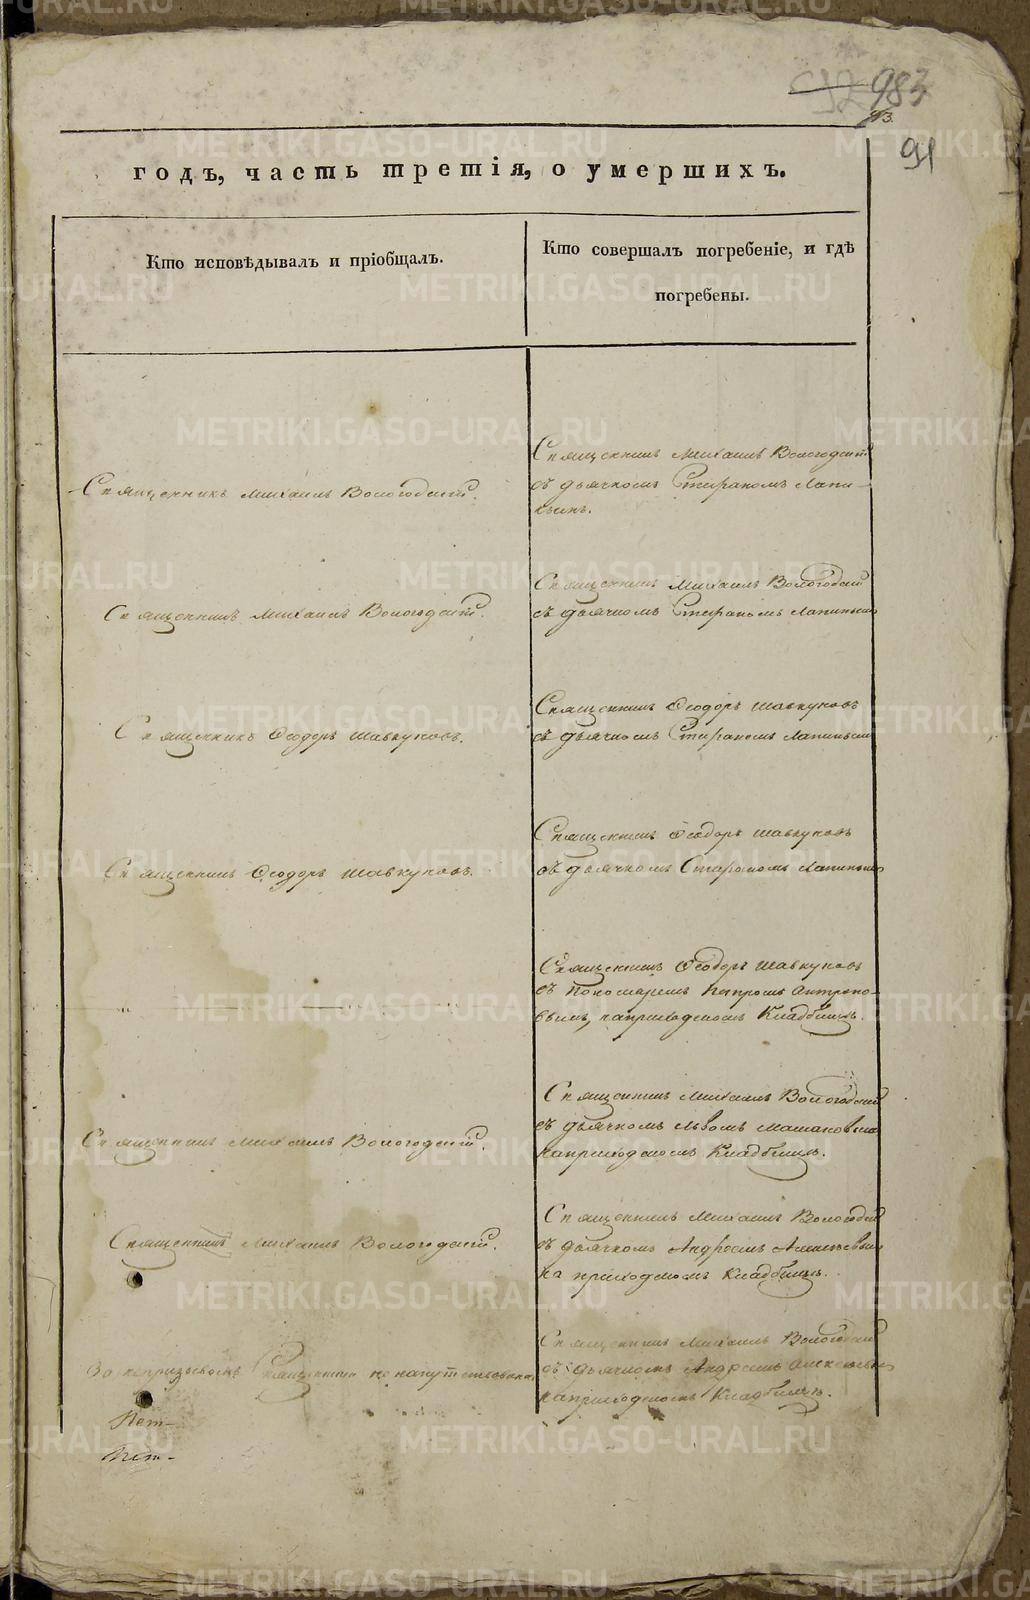 983
93.
91
годъ, часть третія, о умершихъ.
Кто исповѣдывалъ и пріобщалъ.
Кто совершалъ погребеніе, и гдѣ
погребены.
Священникъ Михаилъ Вологодскій
съ дьячкомъ Стефаномъ Лапи-
нымъ.
Священникъ Михаилъ Вологодскій.
Священникъ Михаилъ Вологодскій
съ дьячкомъ Стефаномъ Лапинымъ
Священникъ Михаилъ Вологодскій.
Священникъ Ѳеодоръ Шавкуновъ
съ дьячкомъ Стефаномъ Лапинымъ
Священникъ Ѳеодоръ Шавкуновъ.
Священникъ Ѳеодоръ Шавкуновъ
съ дьячкомъ Стефаномъ Лапинымъ
Священникъ Ѳеодоръ Шавкуновъ.
Священникъ Ѳеодоръ Шавкуновъ
съ пономаремъ Петромъ Антропо-
вымъ, на приходскомъ Кладбищѣ.
Священникъ Михаилъ Вологодскій
съ дьячкомъ Львомъ
на приходскомъ Кладбищѣ.
Священникъ Михаилъ Вологодскій.
Священникъ Михаилъ Вологодскій
съ дьячкомъ Андреемъ
на приходскомъ Кладбищѣ.
Священникъ Михаилъ Вологодскій.
Священникъ Михаилъ Вологодскій
съ дьячкомъ Андреемъ
на приходскомъ Кладбищѣ.
За непризывомъ Священника не напутствована
Нет-
Нет-
METRIKI.GASO-URAL.RU